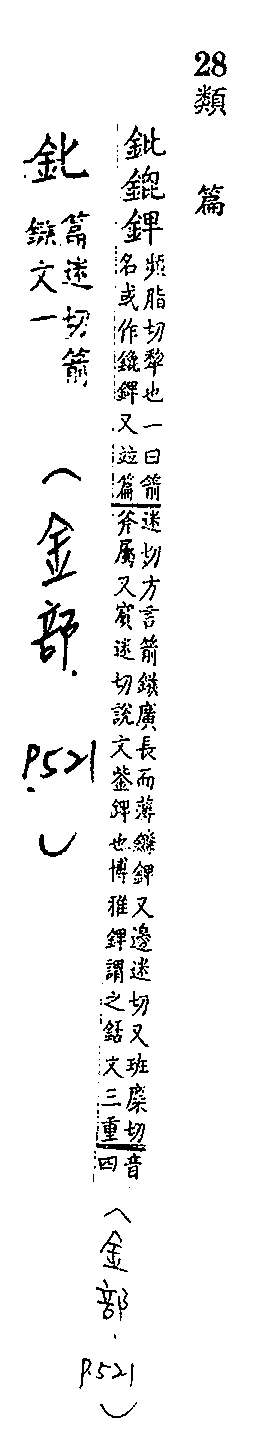 28
類篇
鈚䥯錍頻脂切犂也一曰箭
名或作䥯錍又竝篇迷切方言箭鏃廣長而薄鐮錍又邊迷切又班糜切
斧屬又賓迷切說文鈭錍也博雅錍謂之銛文三重音四
(金部.P.521)
鈚篇迷切箭
鏃文一
(金部.P.521)